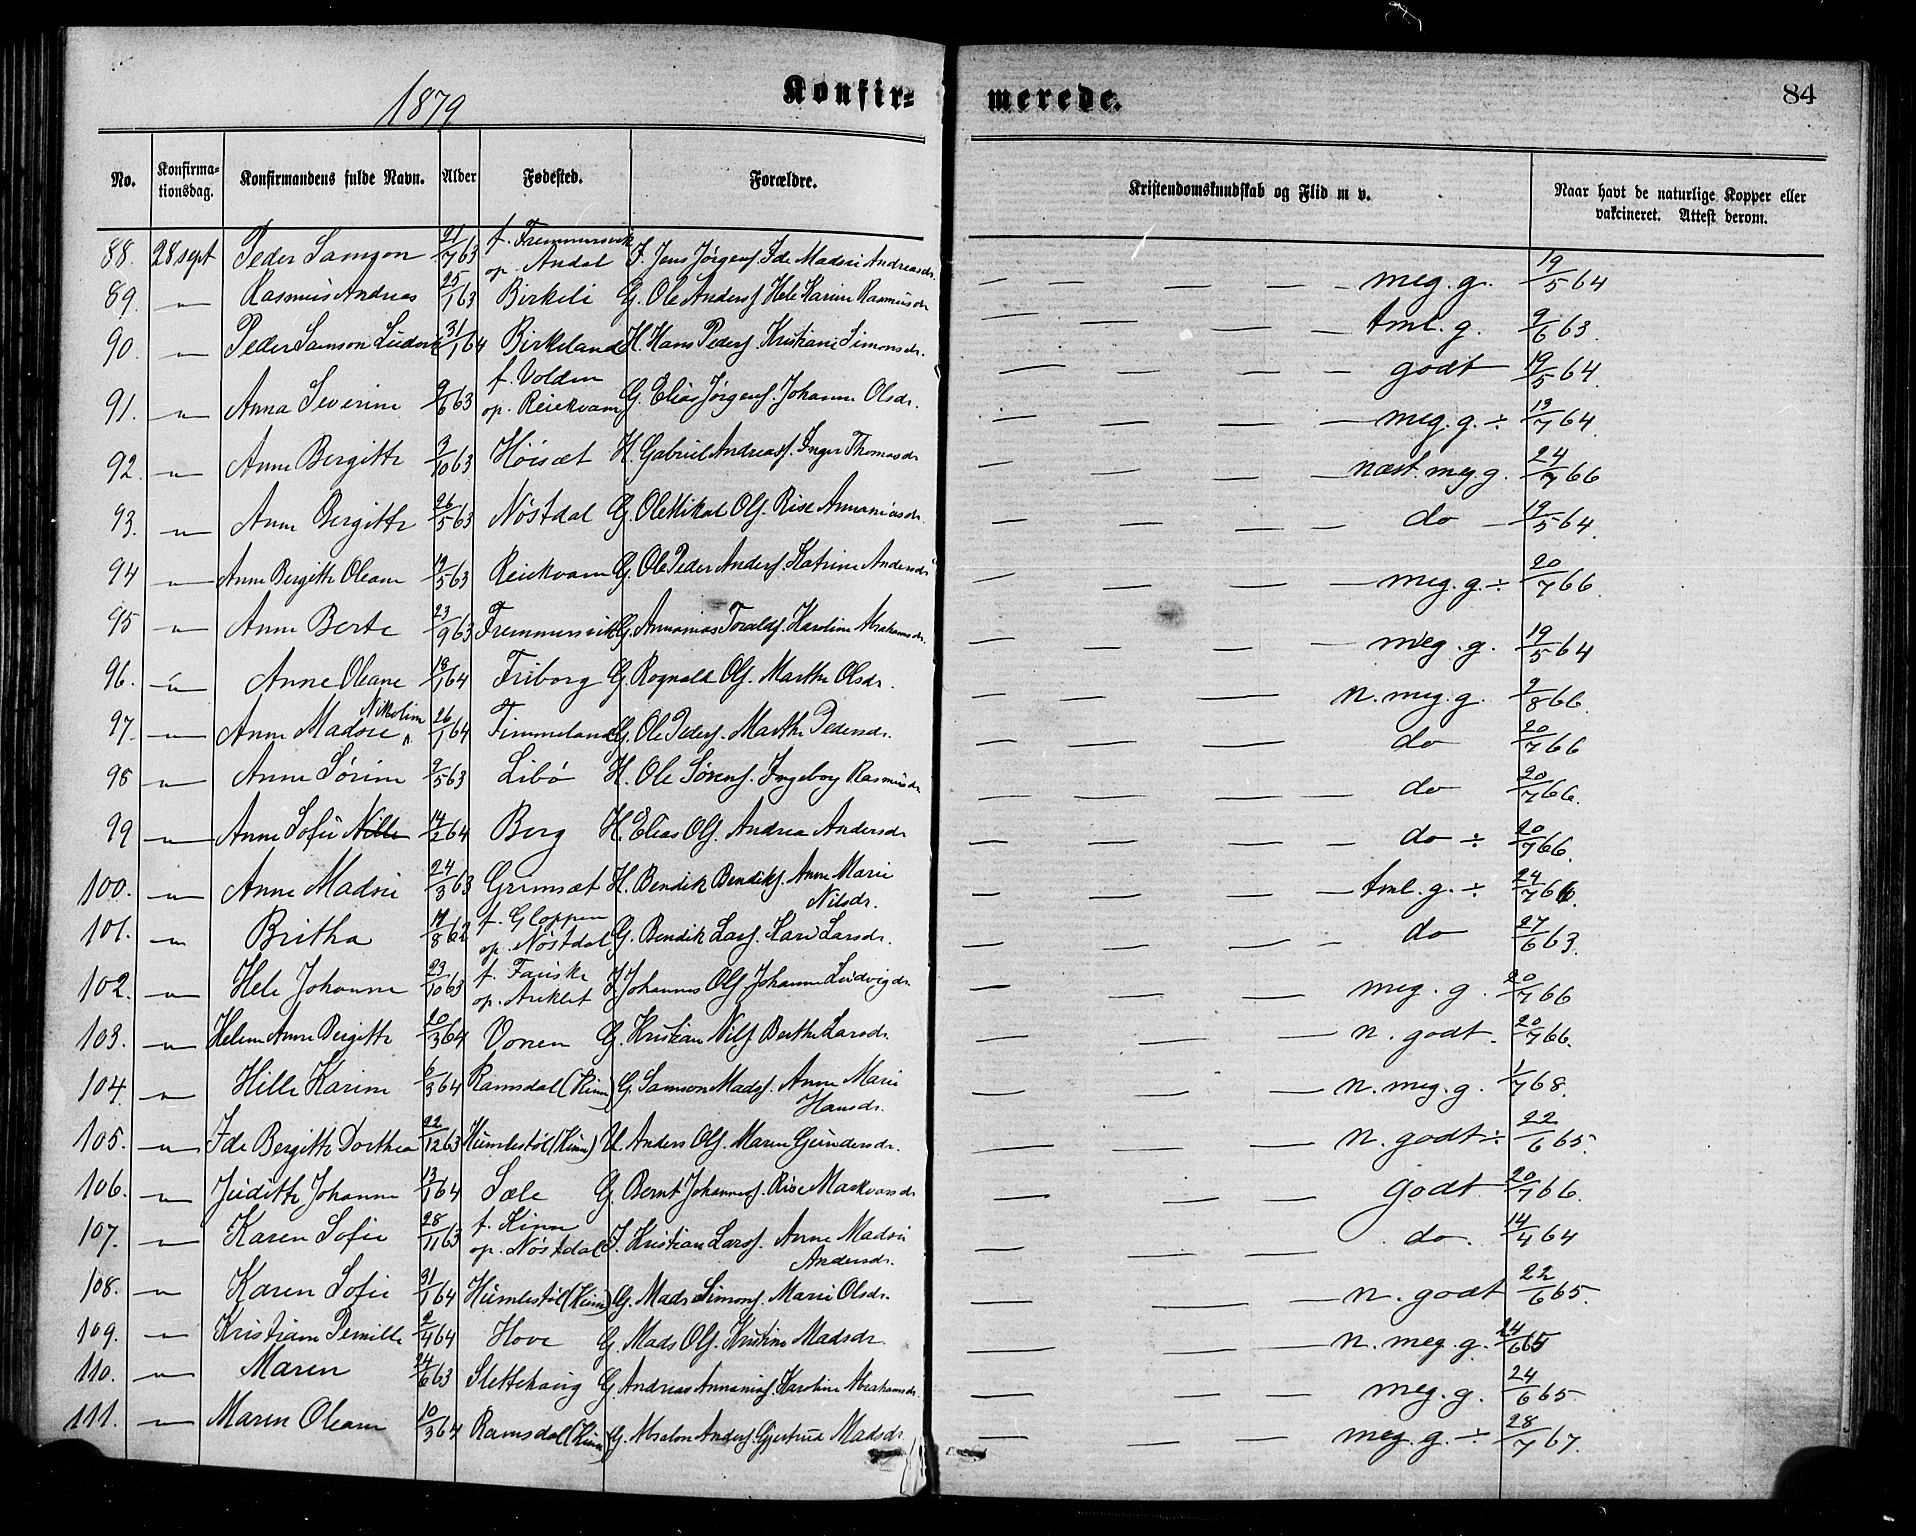 1879 Konfir= merede. 84
No. Konfirma-tionsdag. Konfirmandens fulde Navn. Alder Fødested. Forældre. Kristendomskundskab og Flid m v. Naar havt de naturlige Kopper eller vakcineret. Attest derom.
88. 28 sept Peder Samson 21/7 63 f. Fremmersvik op. Andal I. Jens Jørgens. Ide Madsii Andreasdr. — — — — meg. g. 19/5 64
89. " Rasmus Andreas 25/1 63 Birkeli G. Ole Anders. Hele Karine Rasmusdr — — — — tml. g. 9/6 63.
90. " Peder Samson Ludvi 31/1 64 Birkeland H. Hans Peders. Kristiane Simonsdr. — — — — godt 19/5 64.
91. " Anna Severine 9/6 63 f. Volden op. Reiekvam G. Elias Jørgens. Johanne Olsdr. — — — — meg. g. ÷ 13/7 64.
92. " Anne Bergitte 9/10 63 Höisæt H. Gabriel Andreass. Inger Thomasdr — — — næst. meg g. 24/7 66
93. " Anne Bergitte 26/5 63 Nöstdal G. Ole Mikal Ols. Rise Annaniasdr. — — — — do — 19/5 64.
94 " Anne Bergitte Oleane 19/5 63 Reiekvam G. Ole Peder Anders. Katrine Andersdr — — — — meg. g. ÷ 20/7 66.
95 " Anne Berte 23/9 63 Fremmersvik G. Annanias Toralds. Karoline Abrahamsdr. — — — — meg. g. 19/5 64
96. " Anne Oleane 19/1 64 Friborg G. Rognald Ols. Marthe Olsdr. — — — n. meg. g. 9/8 66.
97. " Anne Madsie Nikoline 26/1 64 Timmeland G. Ole Peders. Marthe Pedersdr. — — — — do 20/7 66
98 " Anne Sörine 9/5 63 Libö H. Ole Sörens. Ingeborg Rasmusdr — — — — do 20/7 66.
99 " Anne Sofie Nille 14/2 64 Berg H. Elias Ols. Andrea Andersdr — — — — do ÷ 20/7 66.
100. " Anne Madsii 24/3 63 Grimsæt H. Bendik Bendiks. Anne Marie Nilsdr. — — — — tml. g. ÷ 24/7 66.
101. " Britha 17/8 62 f. Gloppen op. Nöstdal G. Bendik Lars. Kari Larsdr. — — — — do 27/6 63.
102. " Hele Johanne 23/10 63 f. Fauske op. Areklet I. Johannes Ols. Johanne Ludvigdr — — — meg. g. 20/7 66
103. " Helene Anne Bergitte 20/3 64 Vonen G. Kristian Nils. Berthe Larsdr. — — — — n. godt. 20/7 66.
104. " Hille Karine 6/3 64 Ramsdal (Kinn) G. Samson Mads. Anne Marie Hansdr. — — — n. meg. g. 1/7 68.
105. " Ide Bergitte Dorthea 22/12 63 Humlestöl (Kinn) U. Anders Ols. Maren Gundersdr. — — — n. godt ÷ 22/6 65.
106. " Judithe Johanne 13/1 64 Sæle G. Bernt Johanness. Rise Markvardr — — — godt 20/7 66.
107. " Karen Sofie 28/11 63 f. Kinn op. Nöstdal I. Kristian Lars. Anne Madsii Andersdr. — — — do. 14/4 64
108. " Karen Sofie 31/1 64 Humlestöl (Kinn) G. Mads Simons. Marie Olsdr. — — — n. godt 22/6 65.
109. " Kristiane Pernille 2/4 64 Hove G. Mads Ols. Kristine Madsdr. — — — n. meg. g. 24/6 65
110. " Maren 24/6 63 Slettehaug G. Andreas Annanias. Karoline Abrahamsdr — — — meg. g. 24/6 65.
111. " Maren Oleane 10/3 64 Ramsdal (Kinn) G. Absalon Anders. Gjertrud Madsdr. — — — meg. g. ÷ 28/7 67.